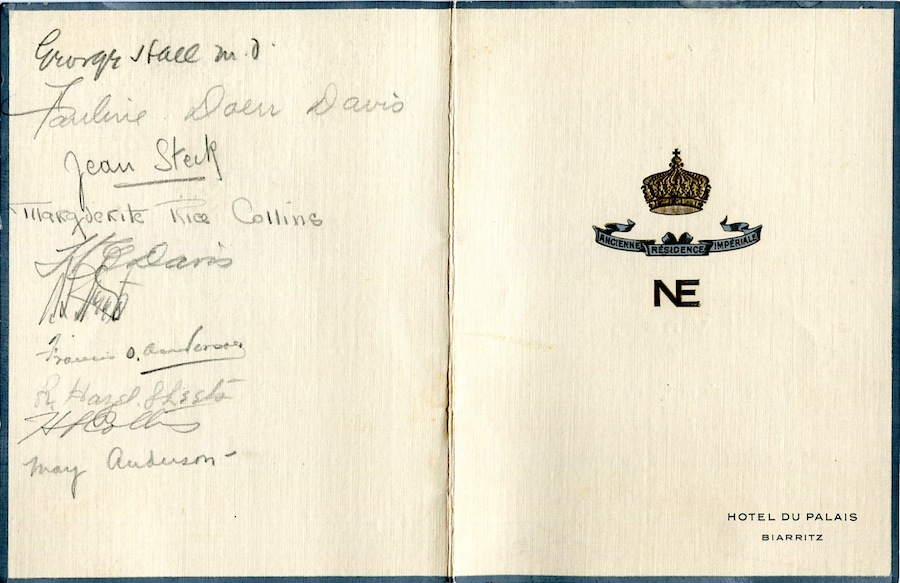 George Hall M.D.
Pauline Doerr Davis
Jean Steck
Marguerite Rice Collins
Davis
Francis O. Anderson
R. Hazel Sheets
H Collins
May Anderson
ANCIENNE RÉSIDENCE IMPÉRIALE
NE
HOTEL DU PALAIS
BIARRITZ